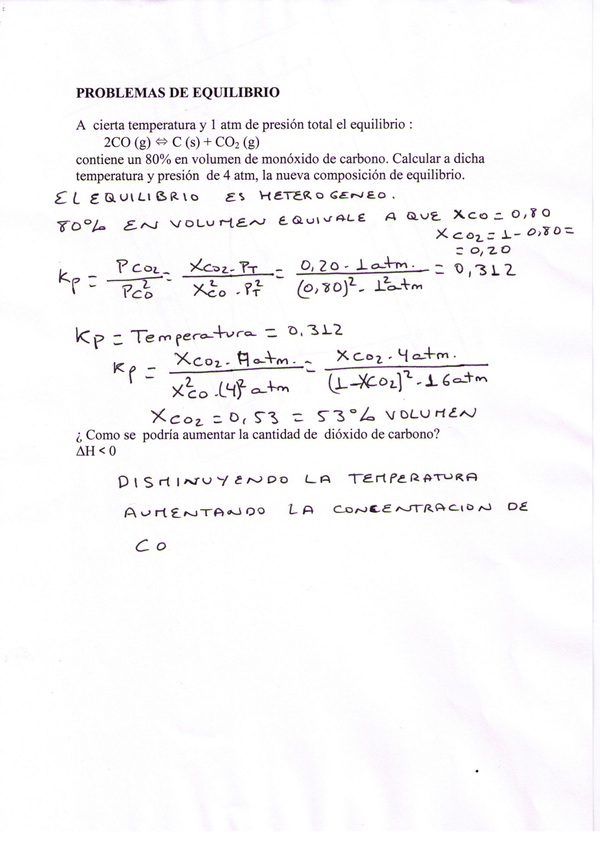 PROBLEMAS DE EQUILIBRIO
A cierta temperatura y 1 atm de presión total el equilibrio :
2CO (g) ⇔ C (s) + CO₂ (g)
contiene un 80% en volumen de monóxido de carbono. Calcular a dicha
temperatura y presión de 4 atm, la nueva composición de equilibrio.
EL EQUILIBRIO ES HETEROGENEO.
80% EN VOLUMEN EQUIVALE A QUE XCO = 0,80
XCO₂ = 1 - 0,80 =
= 0,20
Kp = PCO₂ / P²CO = XCO₂ · PT / X²CO · P²T = 0,20 · 1 atm. / (0,80)² · 1² atm = 0,312
Kp = Temperatura = 0,312
Kp = XCO₂ · 4 atm. / X²CO · (4)² atm = XCO₂ · 4 atm. / (1-XCO₂)² · 16 atm
XCO₂ = 0,53 = 53% VOLUMEN
¿ Como se podría aumentar la cantidad de dióxido de carbono?
ΔH < 0
DISMINUYENDO LA TEMPERATURA
AUMENTANDO LA CONCENTRACION DE
CO